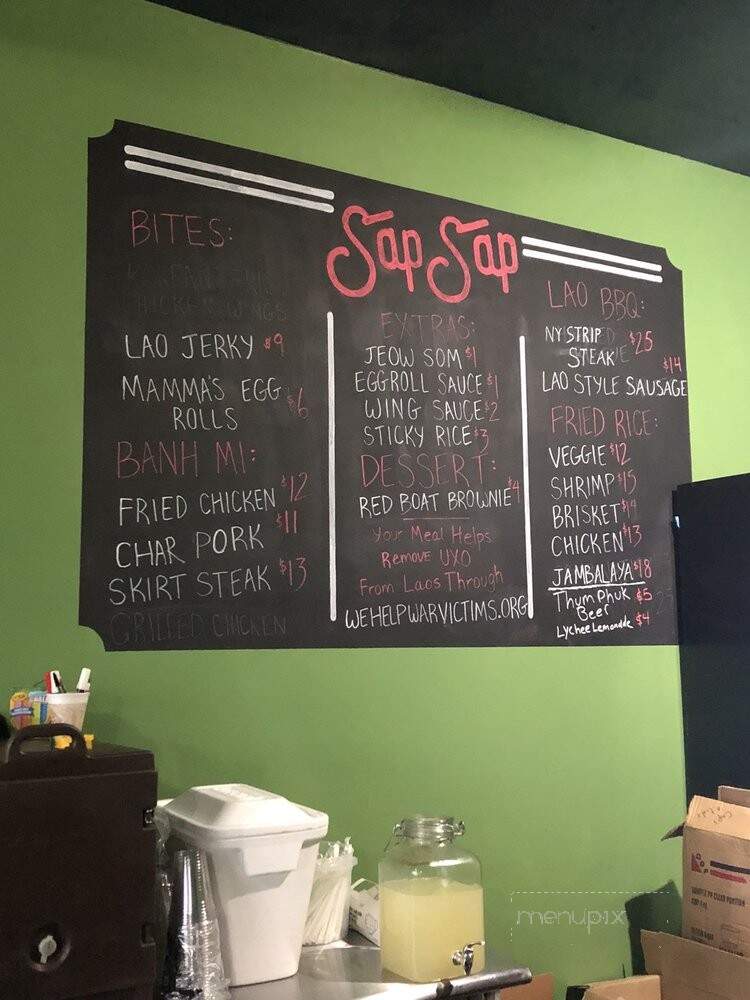 Sap Sap
BITES:
CHICKEN WINGS
LAO JERKY $9
MAMMA'S EGG
ROLLS $6
BANH MI:
FRIED CHICKEN $12
CHAR PORK $11
SKIRT STEAK $13
GRILLED CHICKEN
EXTRAS:
JEOW SOM $1
EGGROLL SAUCE $1
WING SAUCE $2
STICKY RICE $3
DESSERT:
RED BOAT BROWNIE $4
Your Meal Helps
Remove UXO
From Laos Through
WEHELPWARVICTIMS.ORG
LAO BBQ:
NY STRIP
STEAK $25
LAO STYLE SAUSAGE $14
FRIED RICE:
VEGGIE $12
SHRIMP $15
BRISKET $14
CHICKEN $13
JAMBALAYA $18
Thum Phuk
Beer $5
Lychee Lemonade $4
menupix